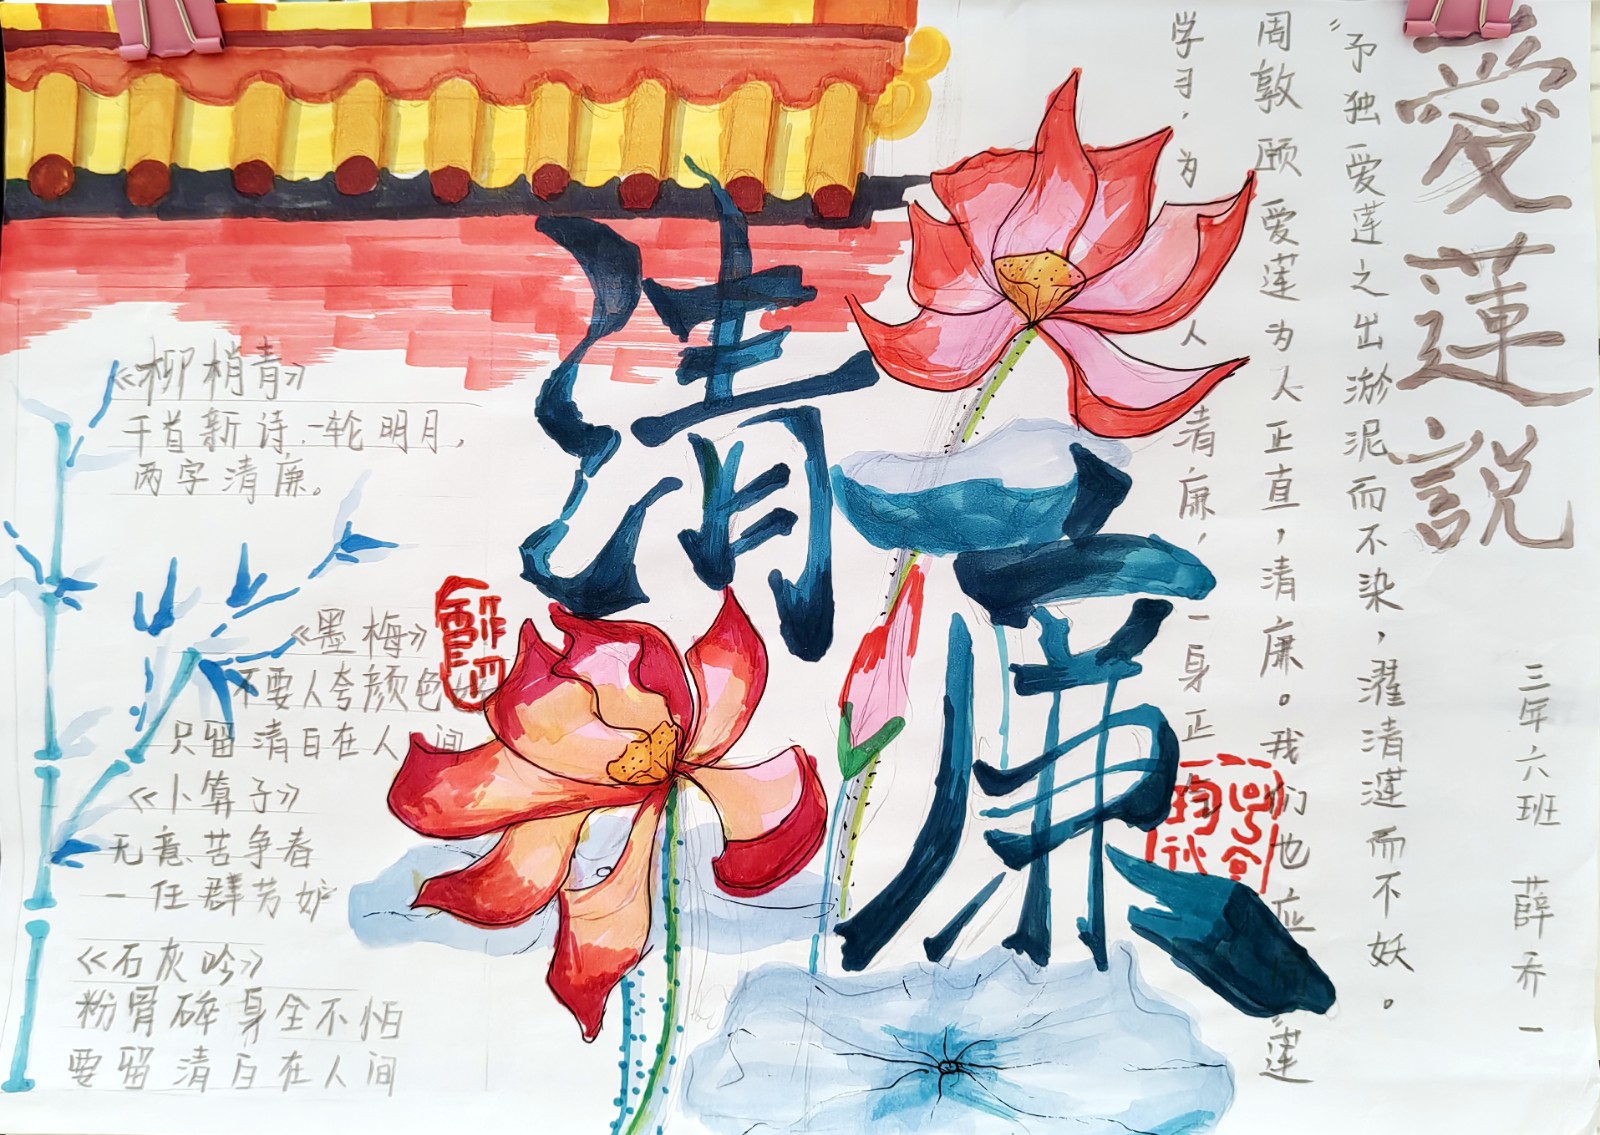 愛蓮說
三年六班 薛乔一
“予独爱莲之出淤泥而不染，濯清涟而不妖。
周敦颐爱莲为人正直，清廉。我们也应向“莲
学习，为人清廉，一身正气
清廉
《柳梢青》
千首新诗，一轮明月，
两字清廉。
《墨梅》
不要人夸颜色好
只留清白在人间
《卜算子》
无意苦争春
一任群芳妒
《石灰吟》
粉骨碎身全不怕
要留清白在人间